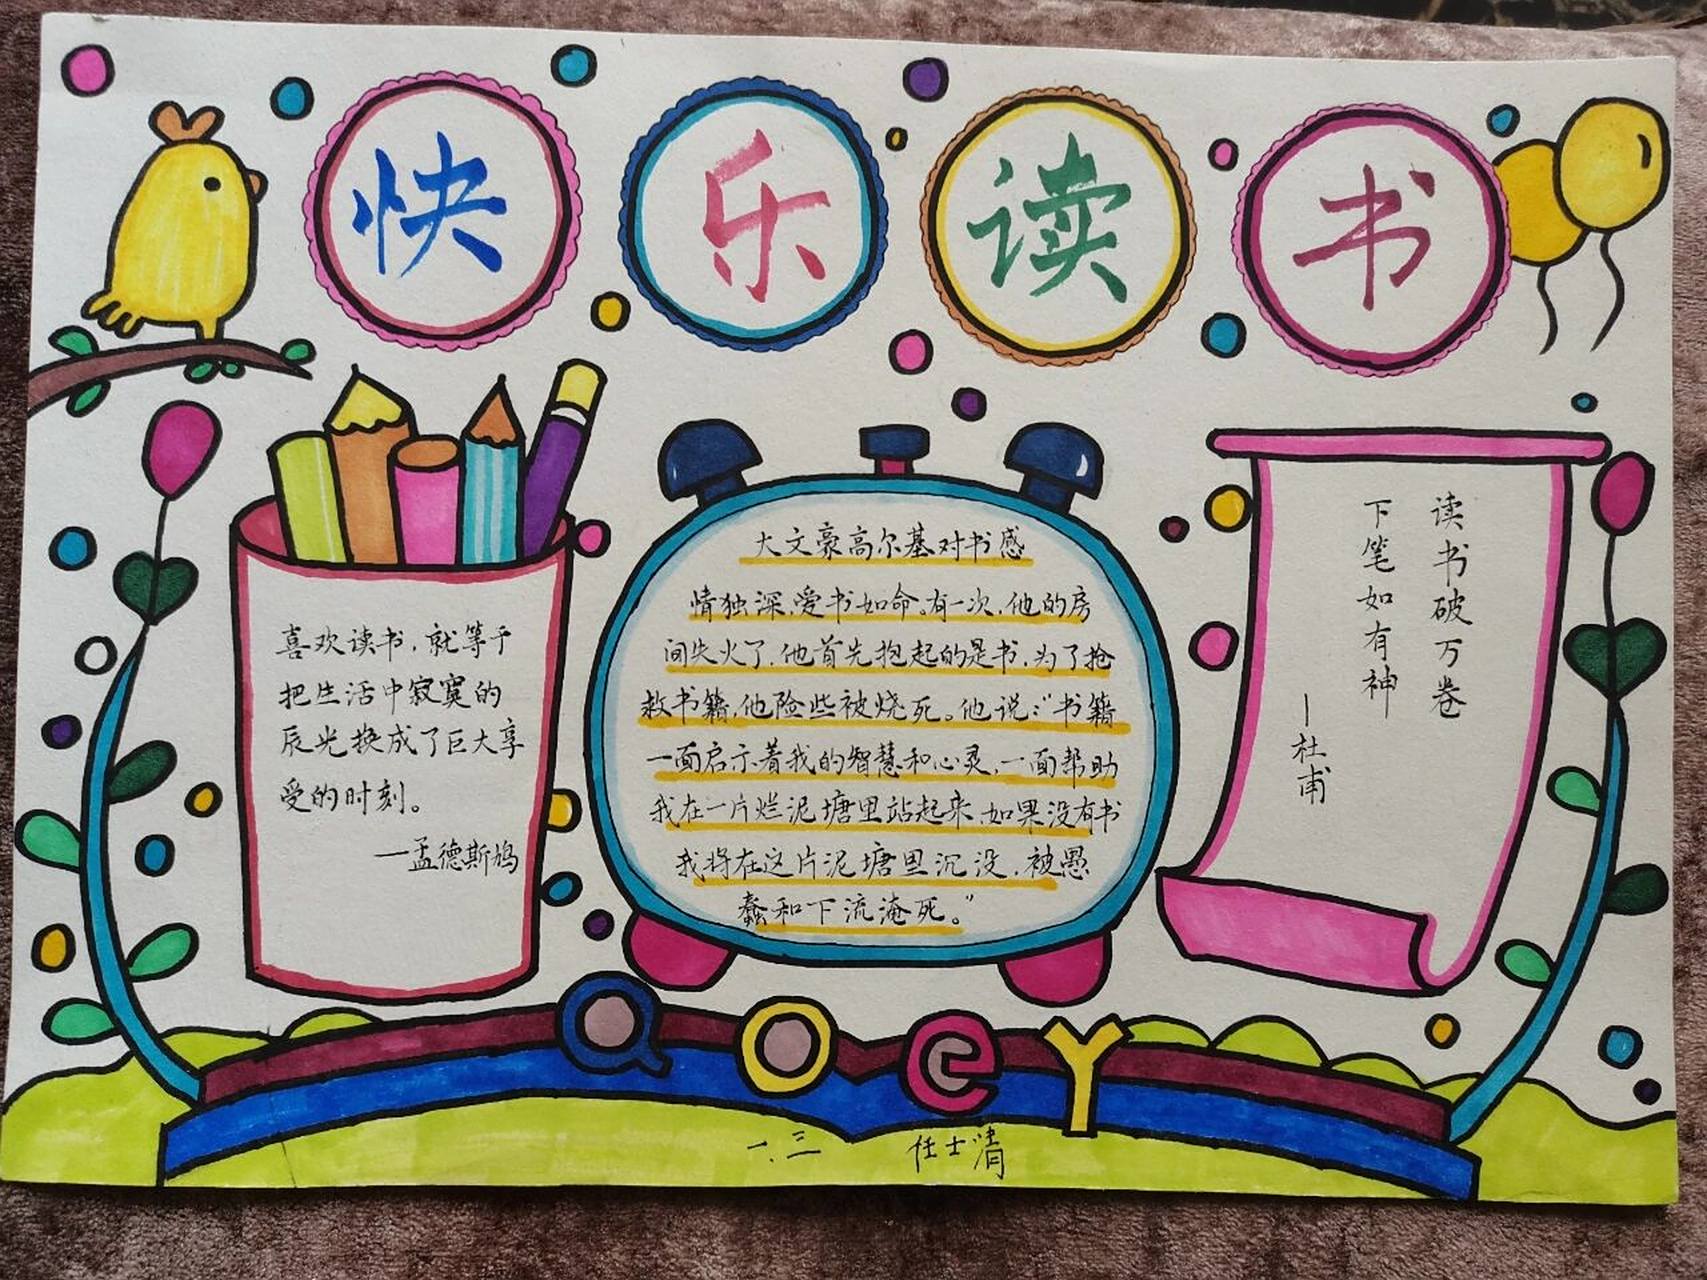 快乐读书
喜欢读书，就等于
把生活中寂寞的
辰光换成了巨大享
受的时刻。
—孟德斯鸠
大文豪高尔基对书感
情独深，爱书如命。有一次，他的房
间失火了，他首先抱起的是书，为了抢
救书籍，他险些被烧死。他说：“书籍
一面启示着我的智慧和心灵，一面帮助
我在一片烂泥塘里站起来，如果没有书
我将在这片泥塘里沉没，被愚
蠢和下流淹死。”
读书破万卷
下笔如有神
—杜甫
QOEY
一、三 任士清